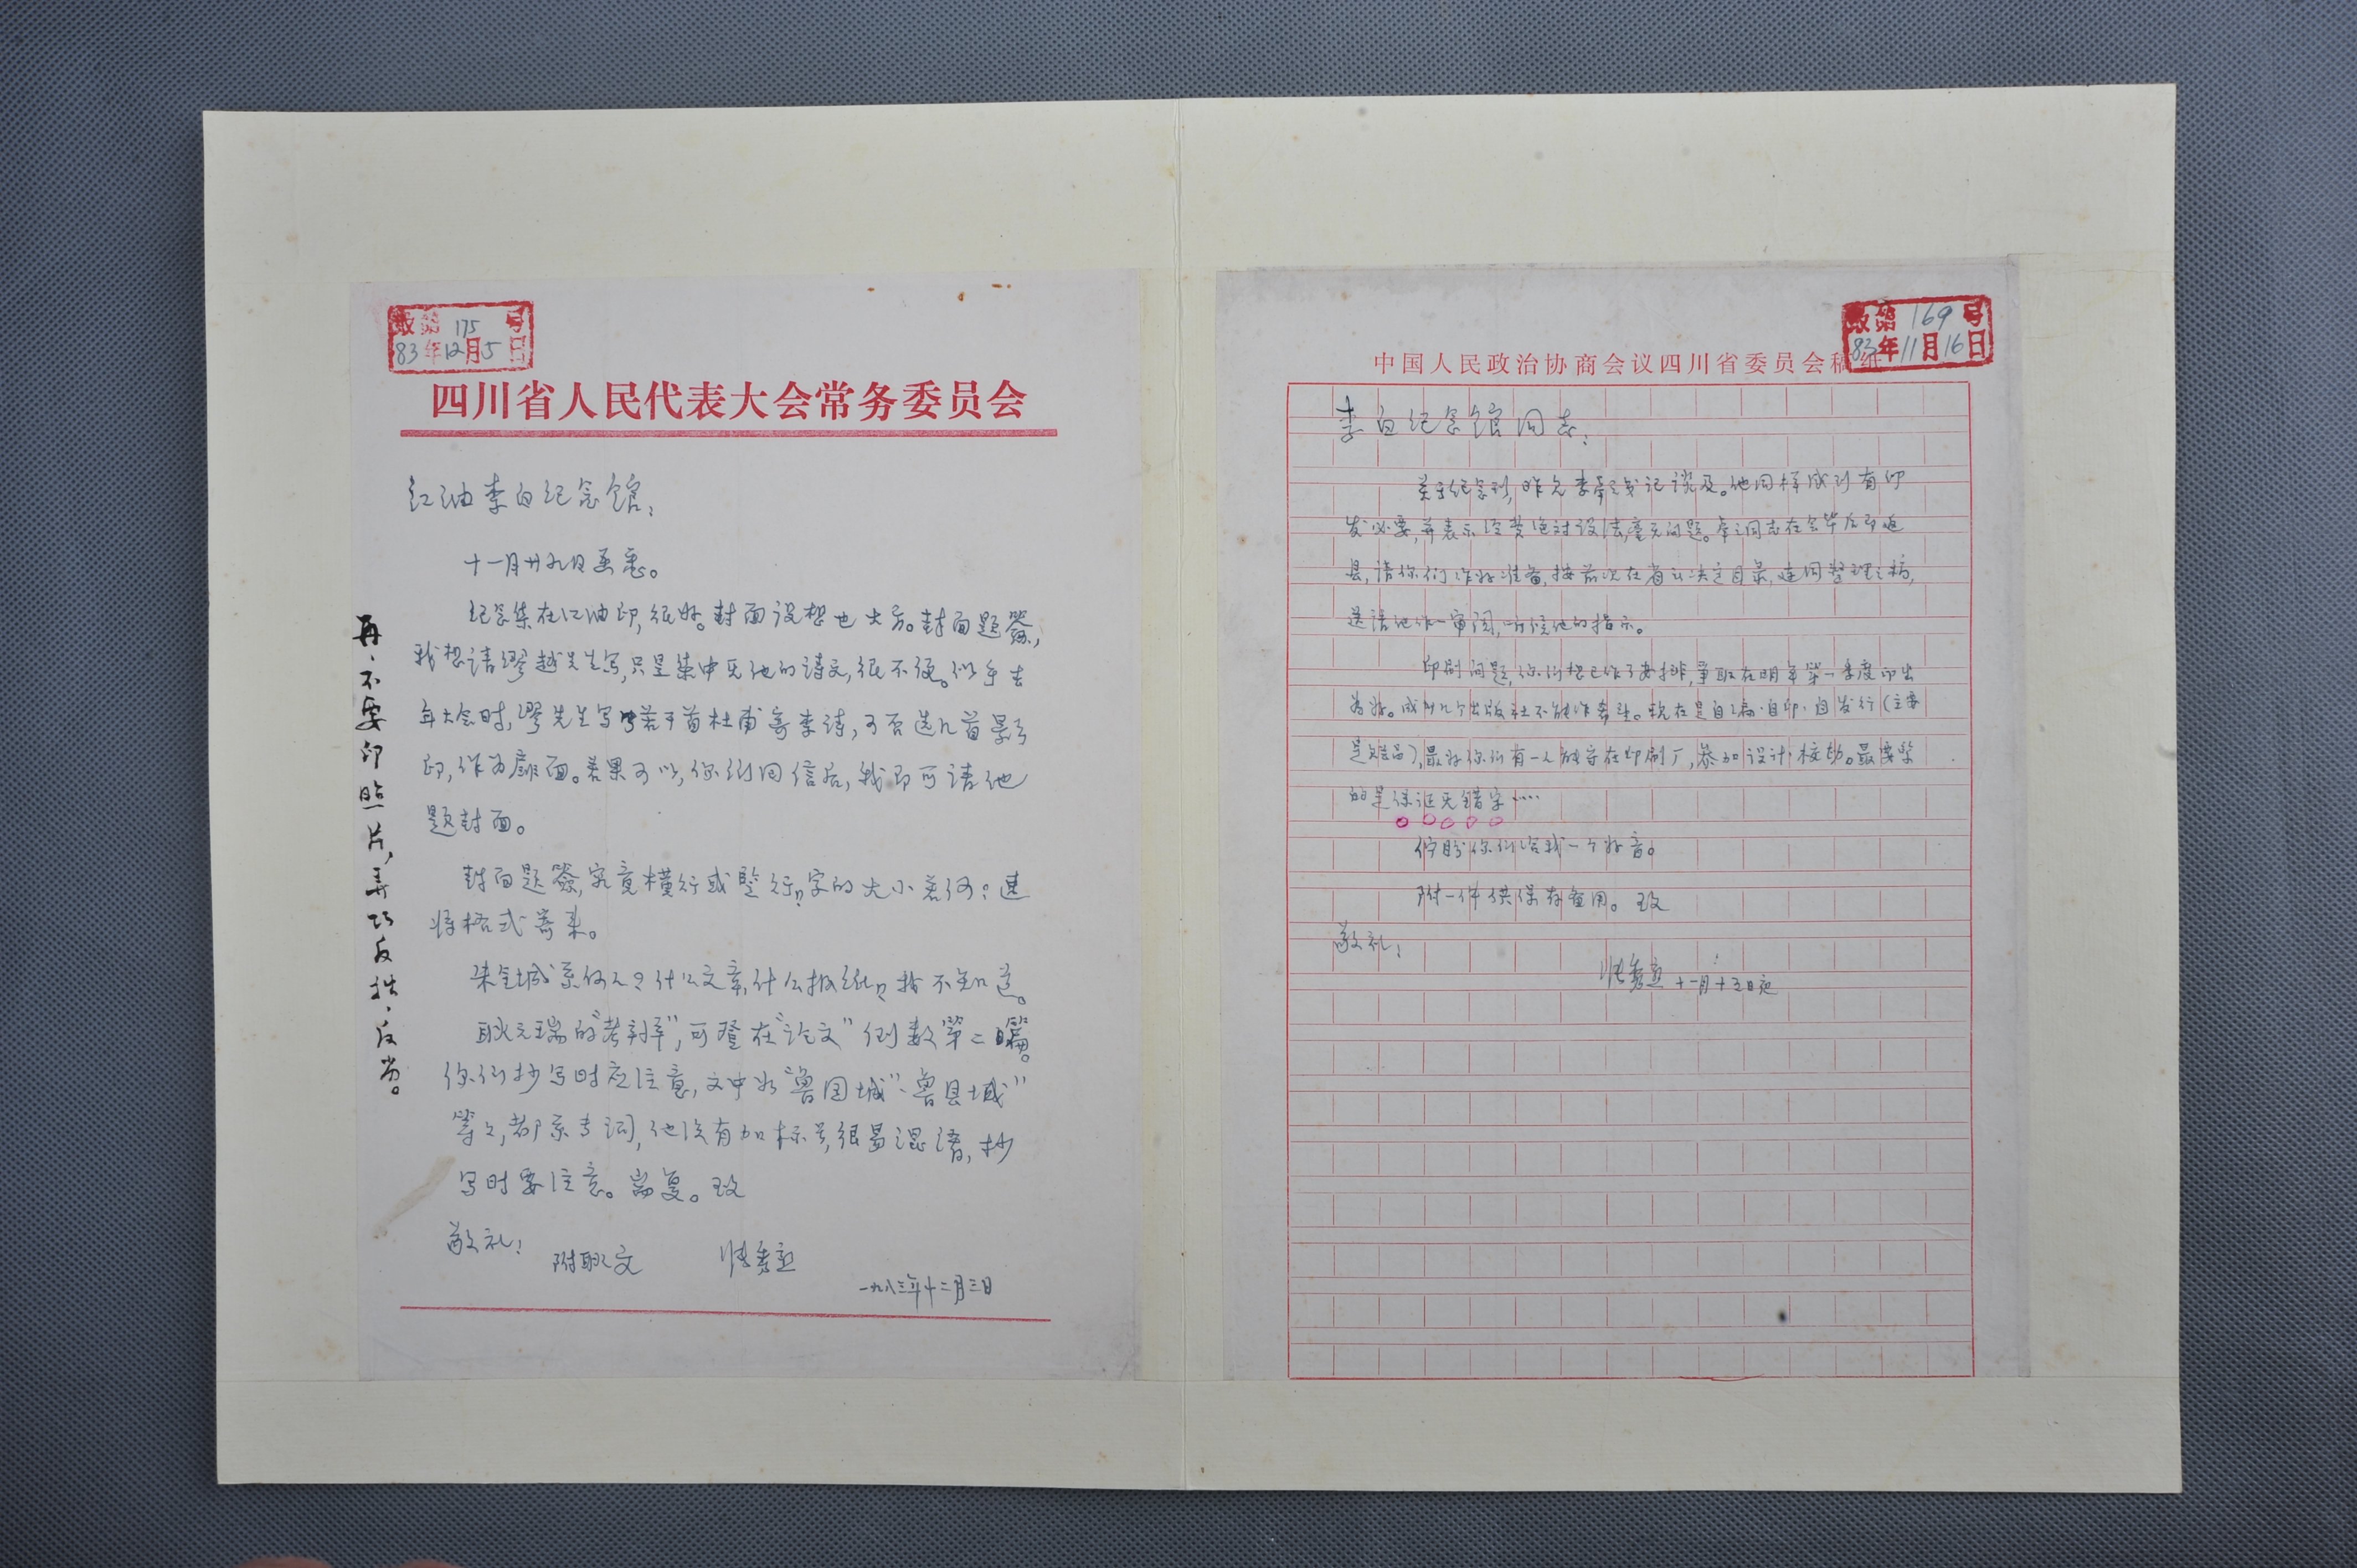 收第175号
83年12月5日
四川省人民代表大会常务委员会
江油李白纪念馆：
十一月廿九日函悉。
纪念集在江油印，很好。封面设想也大方。封面题签，
我想请缪越先生写，只是集中无他的诗文，很不便。似乎去
年大会时，缪先生写若干首杜甫寄李诗，可否选几首影
印，作为扉面。若果可以，你们同信后，我即可请他
题封面。
封面题签，究竟横行或竖行？字的大小若何？速
将格式寄来。
朱金城系何人？什么文章，什么报纸？我不知道。
耿元瑞的“考辨”，可登在“论文”倒数第二篇。
你们抄写时应注意，文中如“鲁国城”、“鲁县城”
等等，都系专词，他没有加标号，很易混淆，抄
写时要注意。耑复。致
敬礼！
附耿文
张秀熟
一九八三年十二月三日
再，不要印照片，弄巧反拙，反为。
收第169号
83年11月16日
中国人民政治协商会议四川省委员会稿纸
李白纪念馆同志：
关于纪念刊，昨允李书记谈及。他同样感到有印
发必要，并表示经费绝对设法，毫无问题。同志在会毕后即返
县，请你们作好准备，按前次在省所决定目录，连同整理之稿，
送请他作一审阅，听候他的指示。
印刷问题，你们想已作了安排，争取在明年第一季度印出
为好。成都几个出版社不能作希望。现在是自编·自印·自发行（主要
是赠品），最好你们有一人能守在印刷厂，参加设计校勘。最要紧
的是保证无错字……
伫盼你们给我一个好音。
附一件供保存备用。致
敬礼！
张秀熟 十一月十五日夜